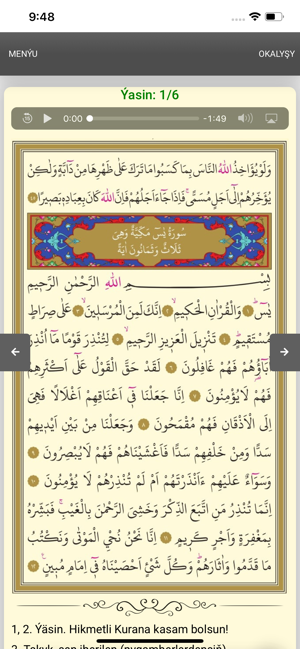 9:48
MENÝU
OKALYŞY
Ýasin: 1/6
0:00
-1:49
وَلَوْ يُؤَاخِذُ اللّٰهُ النَّاسَ بِمَا كَسَبُوا مَا تَرَكَ عَلٰى ظَهْرِهَا مِنْ دَٓابَّةٍ وَلٰكِنْ
يُؤَخِّرُهُمْ اِلٰٓى اَجَلٍ مُسَمًّىۚ فَاِذَا جَٓاءَ اَجَلُهُمْ فَاِنَّ اللّٰهَ كَانَ بِعِبَادِه۪ بَص۪يرًا ﴿٤٥﴾
سُورَةُ يٰسٓ مَكِّيَّةٌ وَهِيَ
ثَلَاثٌ وَثَمَانُونَ اٰيَةً
بِسْمِ اللّٰهِ الرَّحْمٰنِ الرَّح۪يمِ
يٰسٓۜ ﴿١﴾ وَالْقُرْاٰنِ الْحَك۪يمِۙ ﴿٢﴾ اِنَّكَ لَمِنَ الْمُرْسَل۪ينَۙ ﴿٣﴾ عَلٰى صِرَاطٍ
مُسْتَق۪يمٍۜ ﴿٤﴾ تَنْز۪يلَ الْعَز۪يزِ الرَّح۪يمِۙ ﴿٥﴾ لِتُنْذِرَ قَوْمًا مَٓا اُنْذِرَ
اٰبَٓاؤُ۬هُمْ فَهُمْ غَافِلُونَ ﴿٦﴾ لَقَدْ حَقَّ الْقَوْلُ عَلٰٓى اَكْثَرِهِمْ
فَهُمْ لَا يُؤْمِنُونَ ﴿٧﴾ اِنَّا جَعَلْنَا ف۪ٓي اَعْنَاقِهِمْ اَغْلَالًا فَهِيَ
اِلَى الْاَذْقَانِ فَهُمْ مُقْمَحُونَ ﴿٨﴾ وَجَعَلْنَا مِنْ بَيْنِ اَيْد۪يهِمْ
سَدًّا وَمِنْ خَلْفِهِمْ سَدًّا فَاَغْشَيْنَاهُمْ فَهُمْ لَا يُبْصِرُونَ ﴿٩﴾
وَسَوَٓاءٌ عَلَيْهِمْ ءَاَنْذَرْتَهُمْ اَمْ لَمْ تُنْذِرْهُمْ لَا يُؤْمِنُونَ ﴿١٠﴾
اِنَّمَا تُنْذِرُ مَنِ اتَّبَعَ الذِّكْرَ وَخَشِيَ الرَّحْمٰنَ بِالْغَيْبِۚ فَبَشِّرْهُ
بِمَغْفِرَةٍ وَاَجْرٍ كَر۪يمٍ ﴿١١﴾ اِنَّا نَحْنُ نُحْيِ الْمَوْتٰى وَنَكْتُبُ
مَا قَدَّمُوا وَاٰثَارَهُمْۜ وَكُلَّ شَيْءٍ اَحْصَيْنَاهُ ف۪ٓي اِمَامٍ مُب۪ينٍ۟ ﴿١٢﴾
1, 2. Ýäsin. Hikmetli Kurana kasam bolsun!